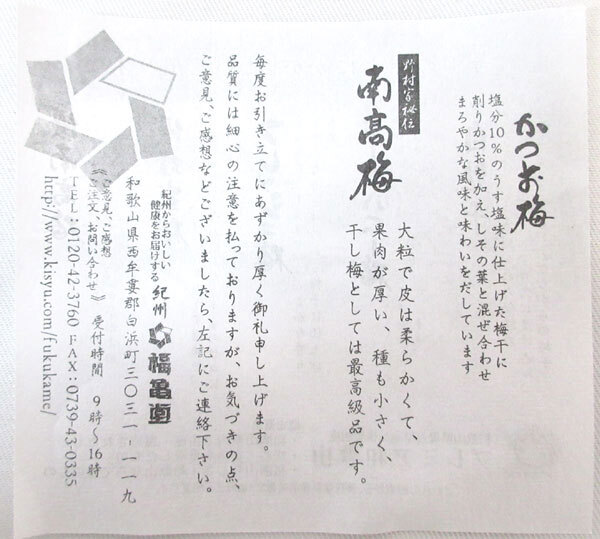 かつお梅
塩分10%のうす塩味に仕上げた梅干に
削りかつおを加え、しその葉と混ぜ合わせ
まろやかな風味と味わいをだしています
野村家秘伝
南高梅
大粒で皮は柔らかくて、
果肉が厚い、種も小さく、
干し梅としては最高級品です。
毎度お引き立てにあずかり厚く御礼申し上げます。
品質には細心の注意を払っておりますが、お気づきの点、
ご意見、ご感想などございましたら、左記にご連絡下さい。
紀州からおいしい
健康をお届けする
紀州 福亀堂
和歌山県西牟婁郡白浜町三〇三一-一一九
《ご意見、ご感想
ご注文、お問い合わせ》 受付時間 9時〜16時
TEL:0120-42-3760 FAX:0739-43-0335
http://www.kisyu.com/fukukame/